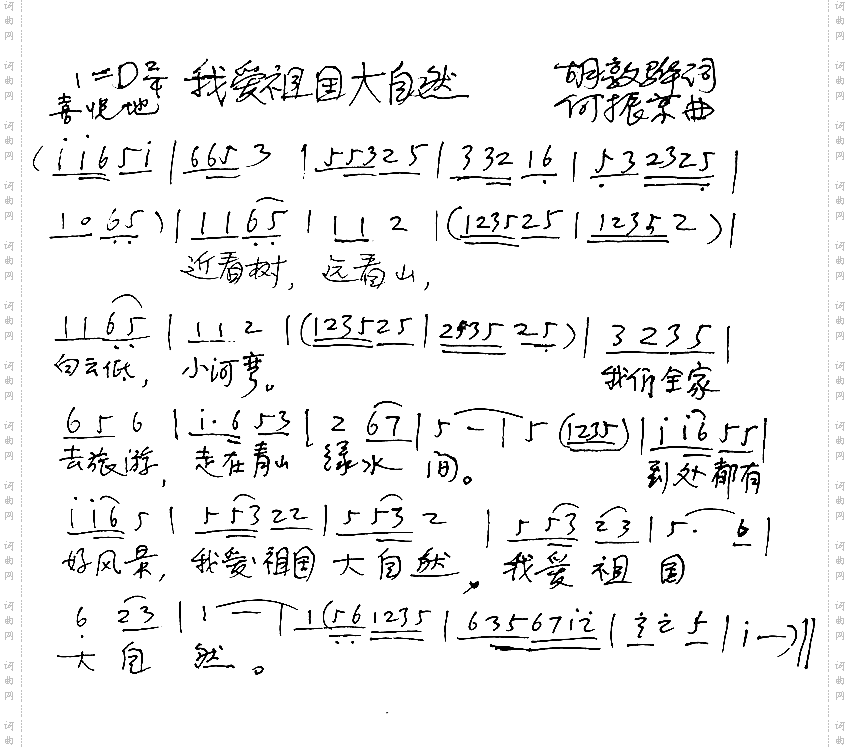 1=D 2/4 我爱祖国大自然 胡敦骅词
喜悦地 何振京曲
(i i 6 5 i | 6 6 5 3 | 5 5 3 2 5 | 3 3 2 1 6 | 5 3 2 3 2 5 |
1 0 6 5) | 1 1 6 5 | 1 1 2 | (1 2 3 5 2 5 | 1 2 3 5 2) |
近看树，远看山，
1 1 6 5 | 1 1 2 | (1 2 3 5 2 5 | 2 5 3 5 2 5) | 3 2 3 5 |
白云低，小河弯。 我们全家
6 5 6 | i· 6 5 3 | 2 6 7 | 5 — | 5 (1 2 3 5) | i i 6 5 5 |
去旅游，走在青山 绿水 间。 到处都有
i i 6 5 | 5 5 3 2 2 | 5 5 3 2 | 5 5 3 2 3 | 5· 6 |
好风景，我爱祖国 大自然，我爱 祖 国
6 2 3 | 1 — | 1 (5 6 1 2 3 5 | 6 3 5 6 7 i 2 | 3 2 5 | i —) ‖
大 自 然。
词曲网